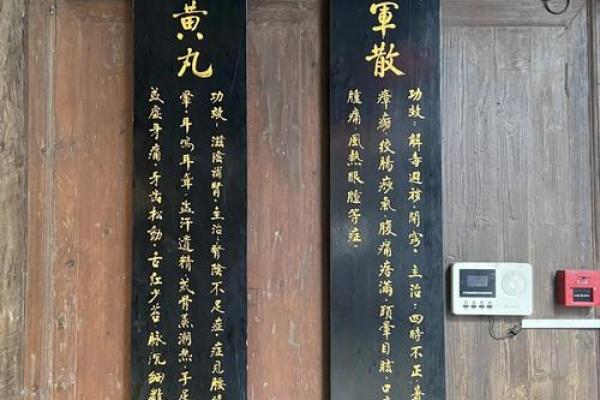 軍散
功效:解毒避穢·開竅·主治:四時不正·
瘴癘·絞腸痧氣·腹痛痞滿·頭暈目眩·口
腫痛·風熱眼腫等症·
黃丸
功效:滋陰補腎·主治:腎陰不足症·症見腰
暈·耳鳴耳聾·盜汗遺精·或骨蒸潮熱·手足
或虛牙痛·牙齒鬆動·舌紅少苔·脈沉細數